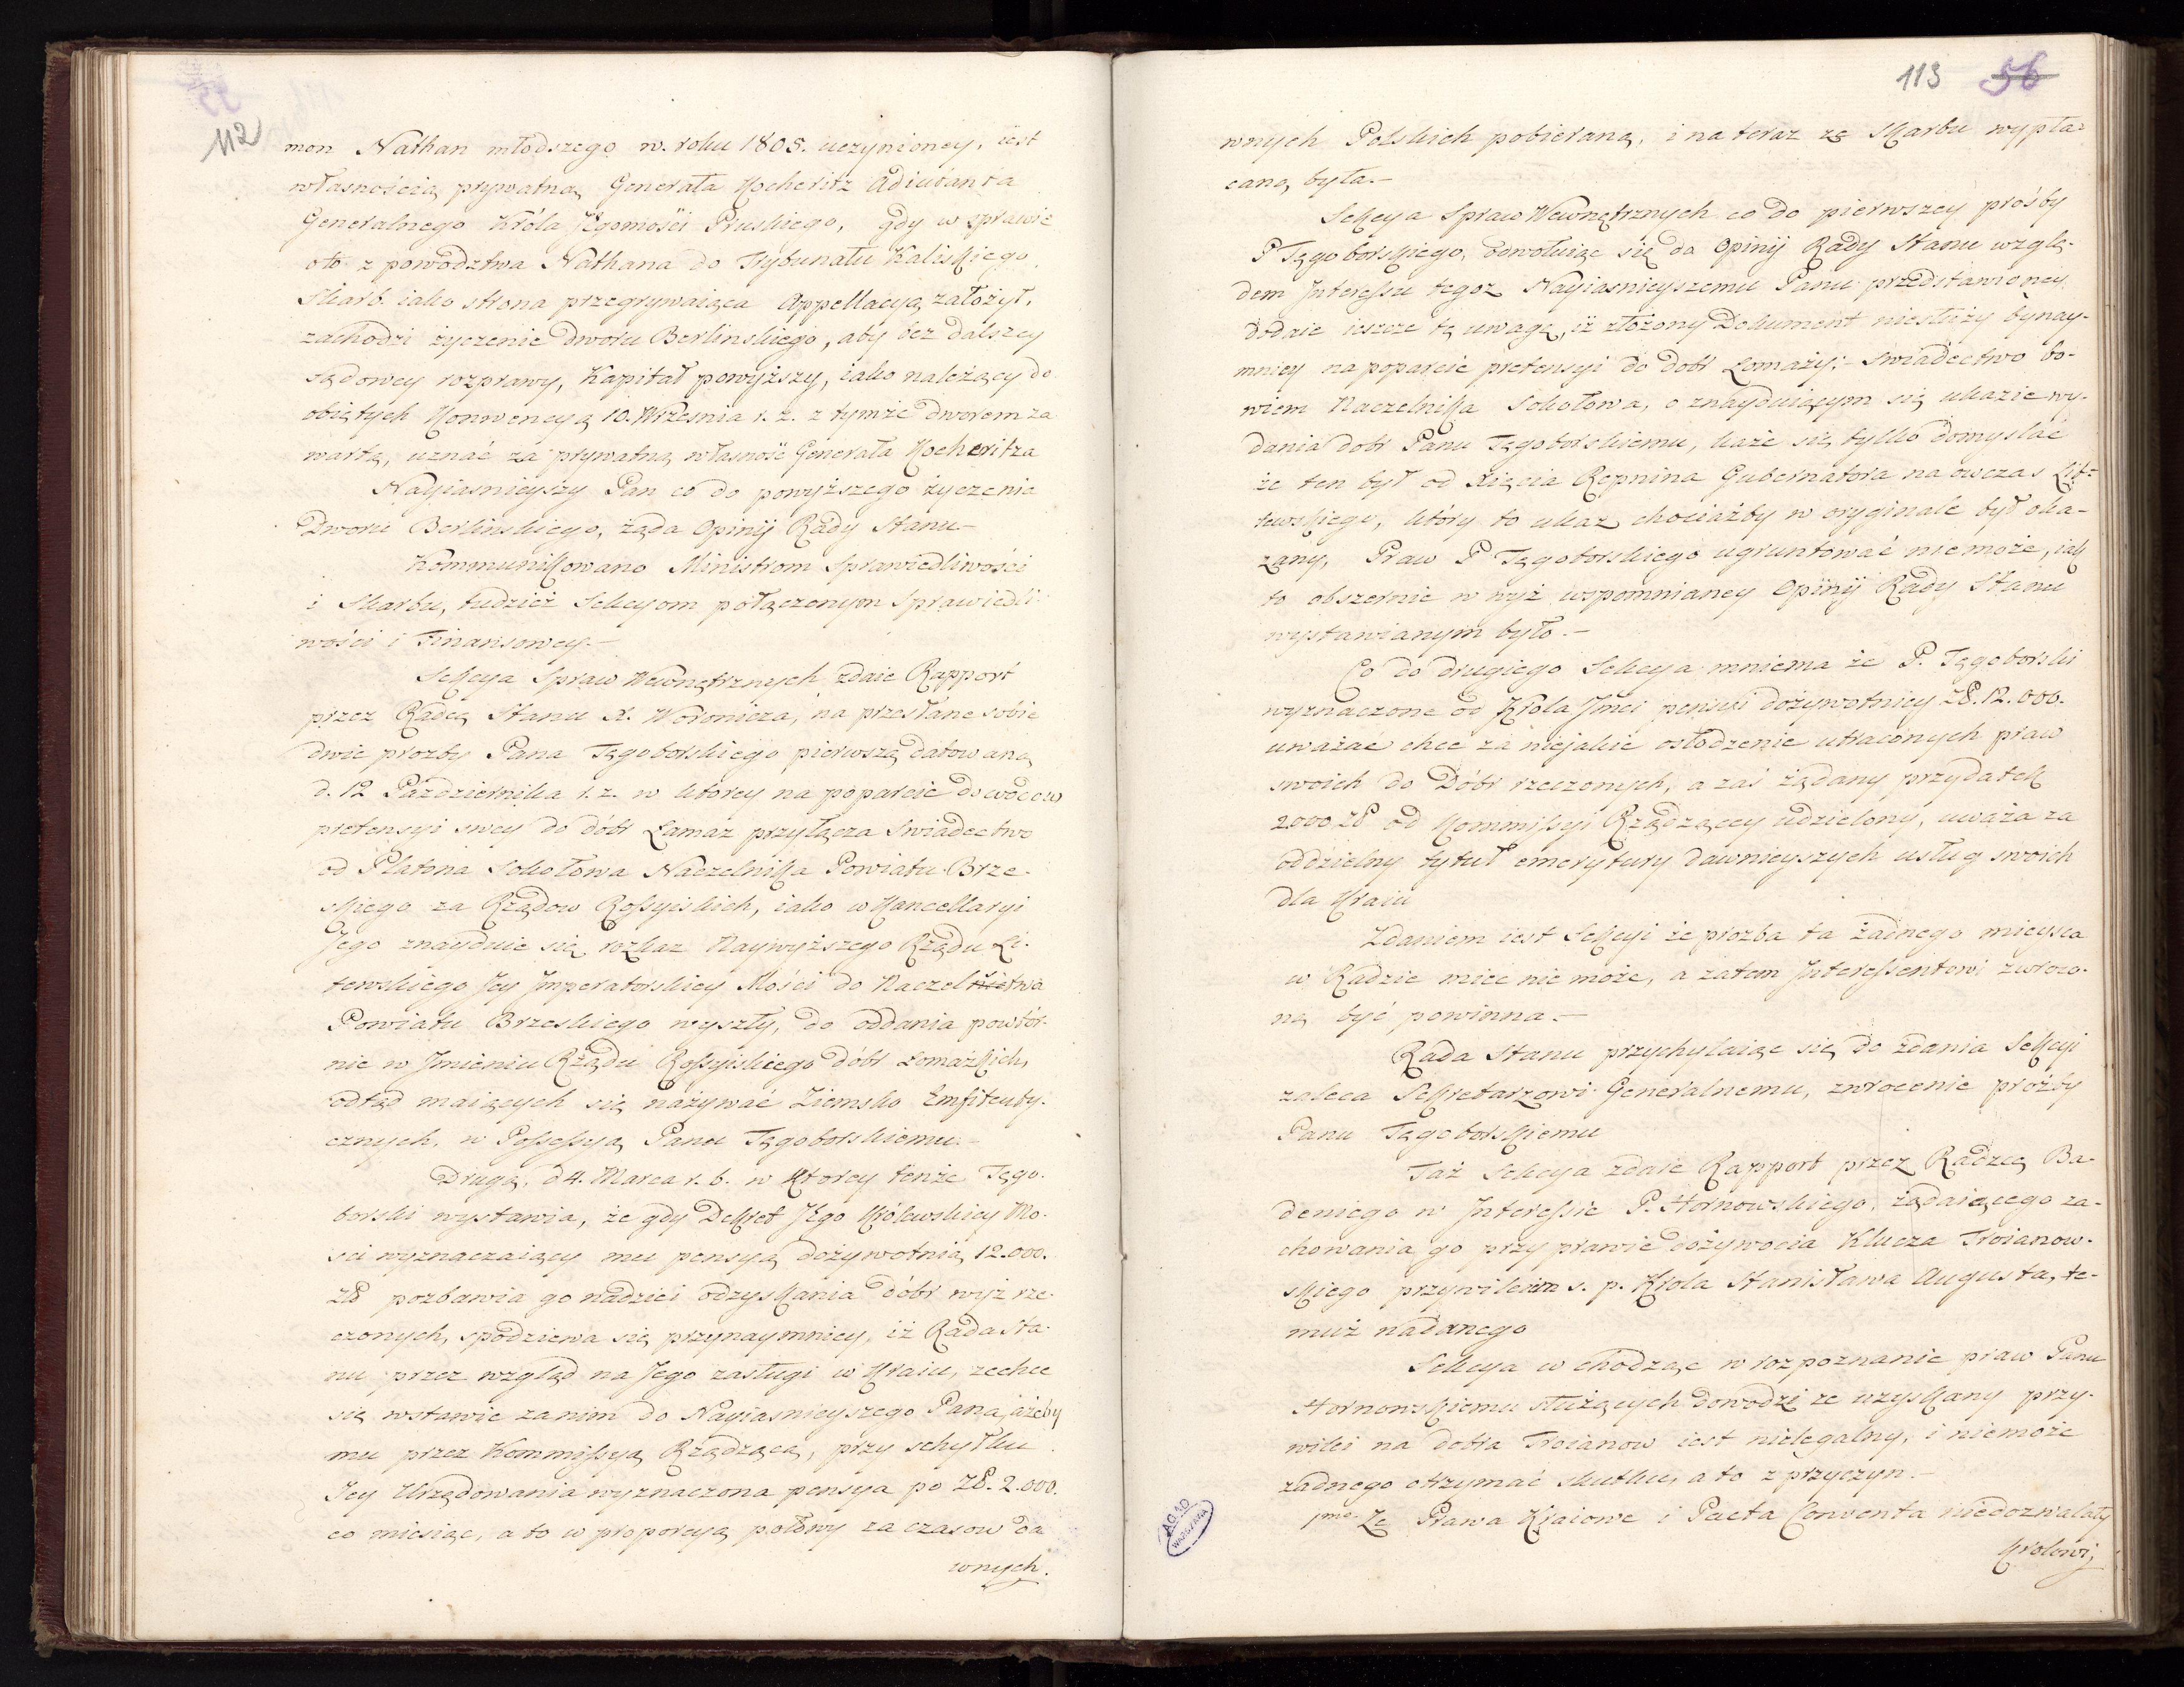 112
mon Nathan młodszego w. roku 1805. uczynioney, iest
własnością prywatną Generała Kocheritz Adiutanta
Generalnego Króla Jegomości Pruskiego, gdy w sprawie
oto z powodztwa Nathana do Trybunału Kaliskiego
Skarb iako strona przegrywaiąca Appellacyą założył,
zachodzi życzenie dworu Berlinskiego, aby bez dalszey
sądowey rozprawy, Kapitał powyższy, iako należący do
obiętych Konwencyą 10. Wrzesnia r. z. z tymże dworem za
wartą, uznać za prywatną własność Generała Kocheritza
Nayiasnieyszy Pan co do powyższego życzenia
Dworu Berlinskiego, żąda Opinij Rady Stanu—
Kommunikowano Ministrom Sprawiedliwości
i Skarbu, tudzież Sekcyom połączonym Sprawiedli-
wości i Finansowey.—
Sekcya Spraw Wewnętrznych zdaie Rapport
przez Radcę Stanu X. Woronicza, na przesłane sobie
dwie prozby Pana Tęgoborskiego, pierwszą datowaną
d. 12 Pazdziernika r. z. w ktorey na poparcie dowodow
pretensyi swey do dóbr Łamaz przyłącza Swiadectwo
od Platona Sokołowa Naczelnika Powiatu Brze-
skiego za Rządow Rossyiskich, iako w Kancellaryi
Jego znayduie się rozkaz Naywyższego Rządu Li-
tewskiego Jey Jmperatorskiey Mości do Naczelnictwa
Powiatu Brzeskiego wyszły, do oddania powtór-
nie w Jmieniu Rządu Rossyiskiego dóbr Łomazkich,
odtąd maiących się nazywać Ziemsko Emfiteuty-
cznych, w Possessyą Panu Tęgoborskiemu.—
Drugą, d 4. Marca r. b. w Ktorey tenże Tęgo-
borski wystawia, że gdy Dekret Jego Królewskiey Mo-
sci wyznaczaiący mu pensyą dożywotnią 12.000.
zł pozbawia go nadziei odzyskania dóbr wyż rze-
czonych, spodziewa się przynaymniey, iż Rada Sta-
nu przez wzgląd na Jego zasługi w Kraiu, zechce
się wstawić za nim do Nayiasnieyszego Pana, ażeby
mu przez Kommissyą Rządzącą, przy schyłku
Jey Urzędowania wyznaczona pensya po Zł. 2.000.
co miesiąc, a to w proporcyą połowy za czasow da
wnych.
113 56
wnych Polskich pobieraną, i na teraz ze Skarbu wypła-
caną była.—
Sekcya Spraw Wewnętrznych co do pierwszey prośby
P Tęgoborskiego, odwołuiąc się do Opinij Rady Stanu wzglę-
dem Jnteressu tegoz Nayiasnieyszemu Panu przedstawioney
dodaie ieszcze tę uwagę, iż złożony Dokument niesłuży bynay-
mniey na poparcie pretensyi do dobr Łomazy:— Swiadectwo bo-
wiem Naczelnika Sokołowa, o znayduiącym się ukazie wy-
dania dobr Panu Tęgoborskiemu, każe się tylko domyslać
że ten był od Xięcia Repnina Gubernatora na owczas Lit-
tewskiego, który to ukaz chociażby w oryginale był oka-
zany, Praw P Tęgoborskiego ugruntować nie może, iak
to obszernie w wyż wspomnianey Opinij Rady Stanu
wystawianym było.—
Co do drugiego Sekcya mniema że P. Tęgoborski
wyznaczone od Króla Jmci pensyi dożywotniey Zł. 12.000.
uważać chce za niejakie osłodzenie utraconych praw
swoich do Dóbr rzeczonych, a zaś żądany przydatek
2000 zł od Kommissyi Rządzącey udzielony, uważa za
oddzielny tytuł emerytury dawnieyszych usług swoich
dla Kraiu
Zdaniem iest Sekcyi że prozba ta żadnego mieysca
w Radzie mieć nie może, a zatem Jnteressentowi zwroco-
ną być powinna.—
Rada Stanu przychylaiąc się do zdania Sekcyi
zaleca Sekretarzowi Generalnemu, zwrocenie prożby
Panu Tęgoborskiemu
Taż Sekcya zdaie Rapport przez Radzcę Ba-
deniego w Jnteressie P. Hornowskiego, żądaiącego za-
chowania go przy prawie dożywocia Klucza Troianow-
skiego przywileiem s. p. Krola Stanisława Augusta, te-
muż nadanego
Sekcya w chodząc w rozpoznanie praw Panu
Hornowskiemu służących dowodzi ze uzyskany przy-
wilei na dobra Troianow iest nielegalny, i niemoże
zadnego otrzymać skutku, a to z przyczyn.—
1mo Ze Prawa Kraiowe i Pacta Conventa niedozwalały
Krolowi,
AGAD
WARSZAWA